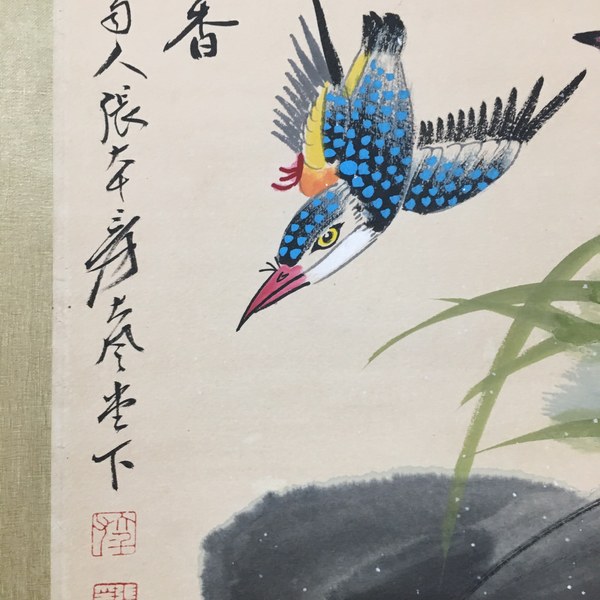 香
人張大千爰大風堂下